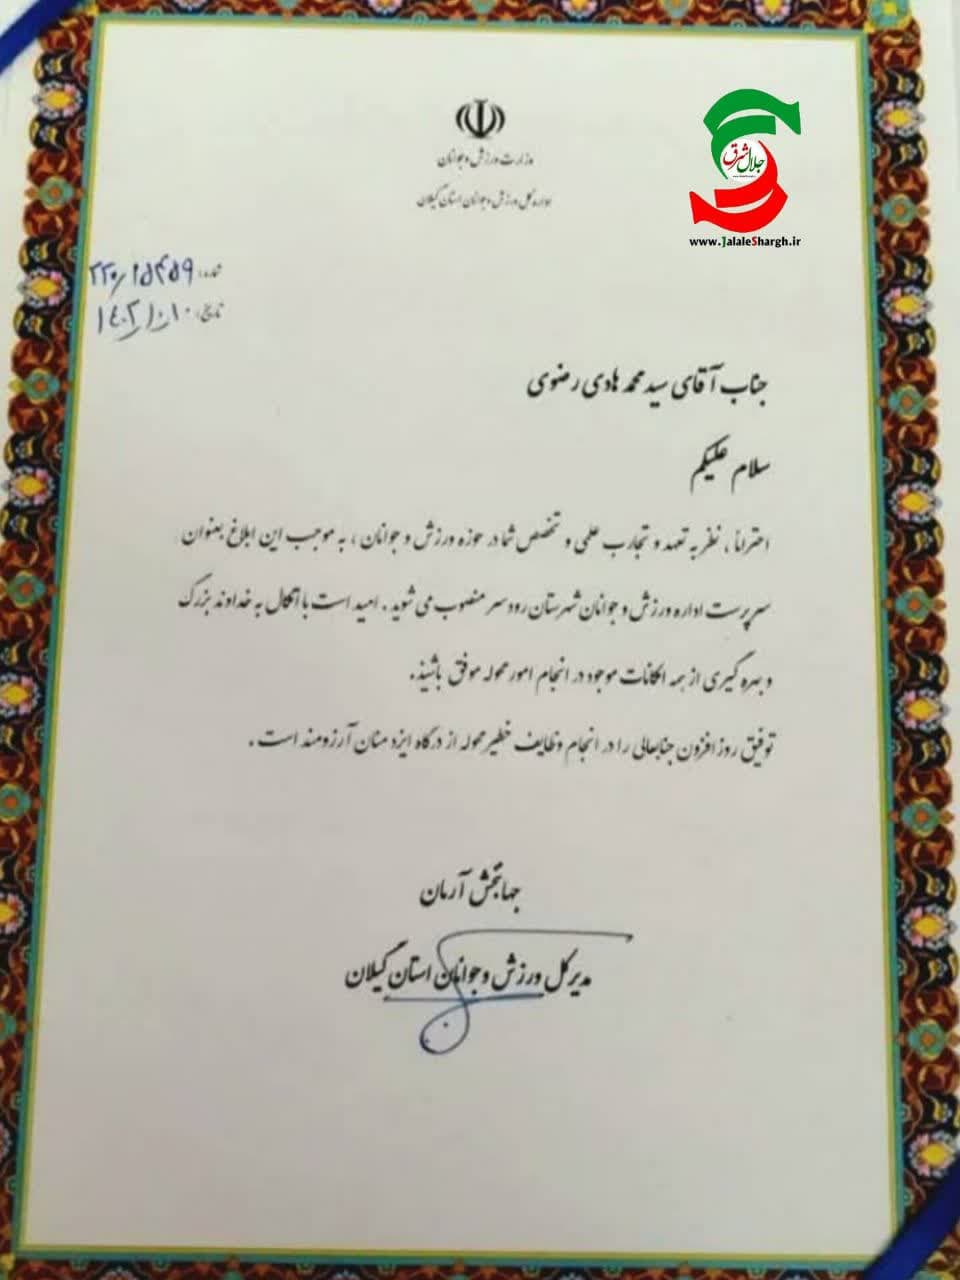 جلال شرق
www.JalaleShargh.ir
وزارت ورزش و جوانان
اداره کل ورزش و جوانان استان گیلان
شماره: ۲۲۰/۱۵۴۵۹
تاریخ: ۱۴۰۲/۱۰/۱۰
جناب آقای سید محمد هادی رضوی
سلام علیکم
احتراماً ، نظر به تعهد و تجارب علمی و تخصص شما در حوزه ورزش و جوانان ، به موجب این ابلاغ بعنوان
سرپرست اداره ورزش و جوانان شهرستان رودسر منصوب می شوید . امید است با اتکال به خداوند بزرگ
و بهره گیری از همه امکانات موجود در انجام امور محوله موفق باشید.
توفیق روز افزون جنابعالی را در انجام وظایف خطیر محوله از درگاه ایزد منان آرزومند است .
جهانبخش آرمان
مدیرکل ورزش و جوانان استان گیلان